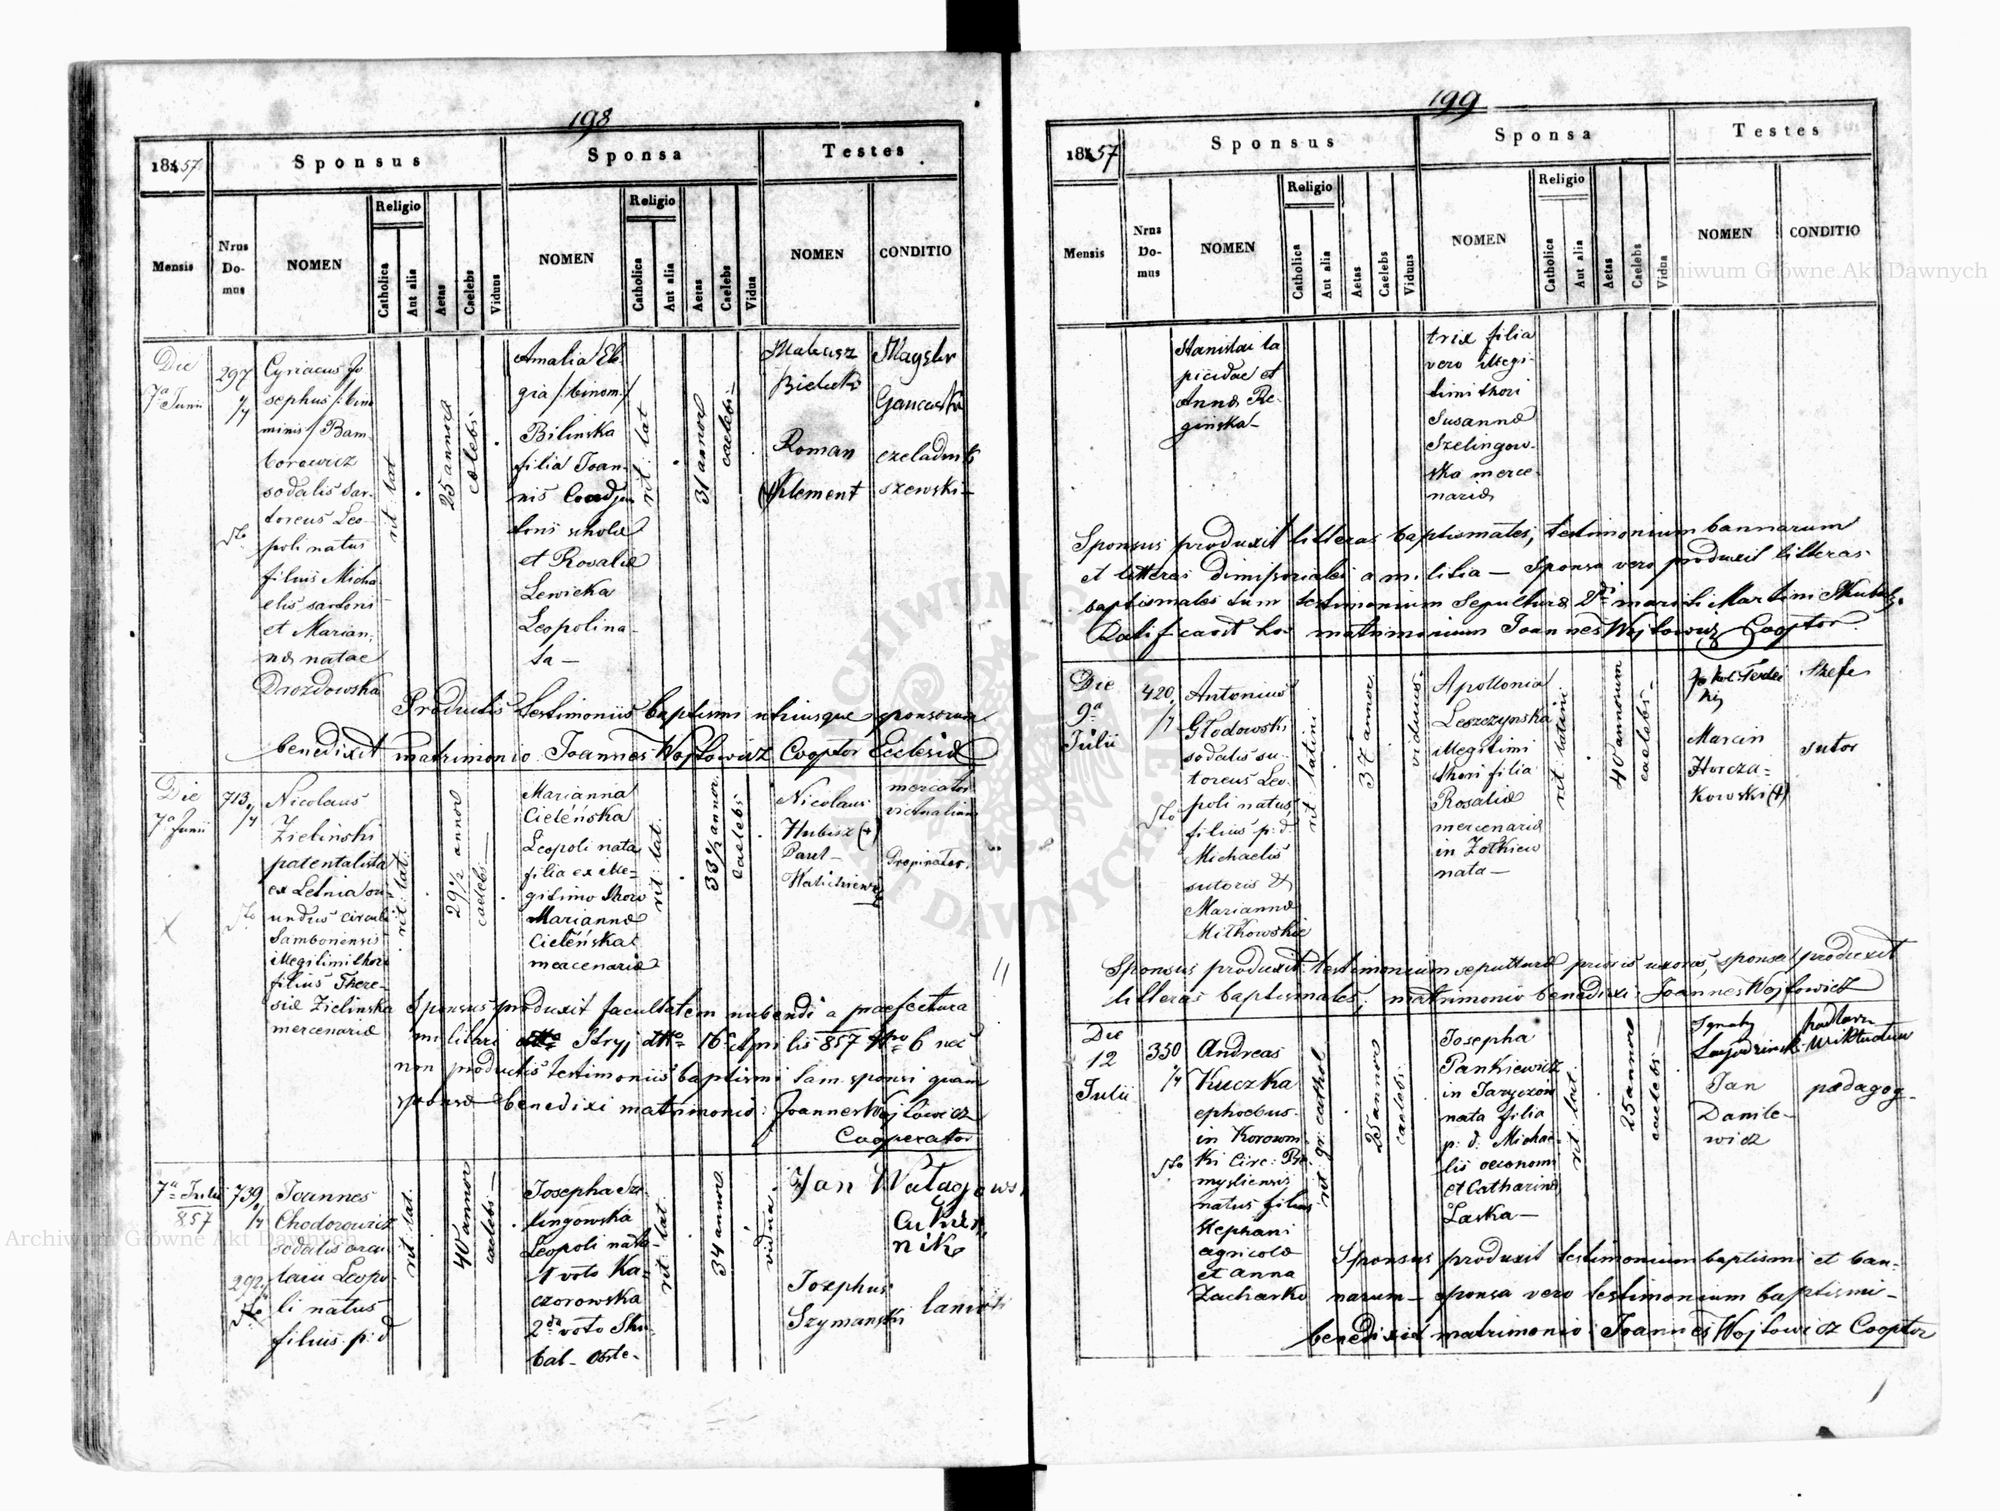 198
1857
Sponsus
Sponsa
Testes
Mensis
Nrus
Do-
mus
NOMEN
Religio
Catholica
Aut alia
Aetas
Caelebs
Viduus
NOMEN
Religio
Catholica
Aut alia
Aetas
Caelebs
Vidua
NOMEN
CONDITIO
Die
7a Junii
297
4/4
Cyriacus Jo
sephus /: bino
minis / Bam
borowicz
sodalis Sar-
toreus Leo-
poli natus
filius Micha
elis sartoris
et Marian-
nae natae
Drozdowska
rit: lat
25 annor
caelebs
Amalia
gia /: binom: /
Bilinska
filia Joan-
nis Coadju
toris scholae
et Rosaliae
Lewicka
Leopolina-
ta —
rit: lat
31 annor
caelebs —
Mateusz
Bielecki
Roman
Klement
Majster
czeladnik
szewski —
Productis testimoniis baptismi utriusque sponsorum
benedixit matrimonio Joannes Wojtowicz Cooptor Ecclesiae
Die
7a Junii
713
4/4
Nicolaus
Zielinski
patentalista
ex Letnia ori-
undus circuli
Samboriensis
illegitimi thori
filius There-
siae Zielinska
mercenariae
rit: lat:
29 1/2 annor
caelebs —
Marianna
Cieleńska
Leopoli nata
filia ex ille-
gitimo thoro
Mariannae
Cieleńska
mercenariae
rit: lat.
33 1/2 annor
caelebs
Nicolaus
Hubisz (+)
Pavel —
mercator
victualium
Propinator.
Sponsus produxit facultatem nubendi a praefectura
militari Stryj dtto 16 Aprilis 857 Nro 6 nec
non productis testimoniis baptismi tam sponsi quam
sponsae benedixi matrimonio: Joannes Wojtowicz
Cooperator
7a Julii
857
739
4/4
292
Joannes
Chodorowicz
sodalis arcu
larii Leopo-
li natus
filius p: d
rit: lat.
40 annor
caelebs —
Josepha Sze-
lingowska
Leopoli nata-
1 voto Ka-
czorowska
2do voto Sku-
bal — obste-
rit: lat.
34 annor
vidua
Jan Watagows
Cukier,
nik
Josephus
Szymanski
lanio
199
1857
Sponsus
Sponsa
Testes
Mensis
Nrus
Do-
mus
NOMEN
Religio
Catholica
Aut alia
Aetas
Caelebs
Viduus
NOMEN
Religio
Catholica
Aut alia
Aetas
Caelebs
Vidua
NOMEN
CONDITIO
Stanislai la
picidae et
Annae Re-
ginska —
trix filia
vero illegi-
timi thori
Susannae
Szelingow-
ska merce-
nariae
Sponsus produxit litteras baptismales, testimonium bannorum
et litteras dimissoriales a militia — Sponsa vero produxit litteras
baptismales tum testimonium Sepulturae 2di mariti Martini Skubal,
Ratificavit hoc matrimonium Joannes Wojtowicz Cooptor.
Die
9a
Julii
420
/4
Antonius
Głodowski
sodalis su-
toreus Leo-
poli natus
filius p: d:
Michaelis
sutoris et
Mariannae
Miłkowskie
rit latini
37 annor
viduus
Apollonia
Leszczynska
illegitimi
thori filia
Rosaliae
mercenariae
in Zołkiew
nata —
rit: latini
40 annorum
caelebs —
Marcin
Horcza-
kowski (+)
Szefc
sutor
Sponsus produxit testimonium sepulturae prioris uxoris, sponsa produxit
litteras baptismales; matrimonio benedixi Joannes Wojtowicz
Die
12
Julii
350
/4
Andreas
Kuczka
ephoebus
in Korowni
ki Circ: Pre
mysliensis
natus filius
Stephani
agricolae
et Anna
Zacharko
rit gr: cathol
25 annor
caelebs.
Josepha
Pankiewicz
in Jaryczow
nata filia
p: d: Michae
lis oeconomi
et Catharinae
Laska —
rit: lat.
25 annor
caelebs —
Ignacy
Jan
Danile-
wicz
paedagog-
Sponsus produxit testimonium baptismi et ban-
norum — sponsa vero testimonium baptismi —
benedixit matrimonio Joannes Wojtowicz Cooptor
Archiwum Główne Akt Dawnych
Archiwum Główne Akt Dawnych
ARCHIWUM GŁÓWNE AKT DAWNYCH